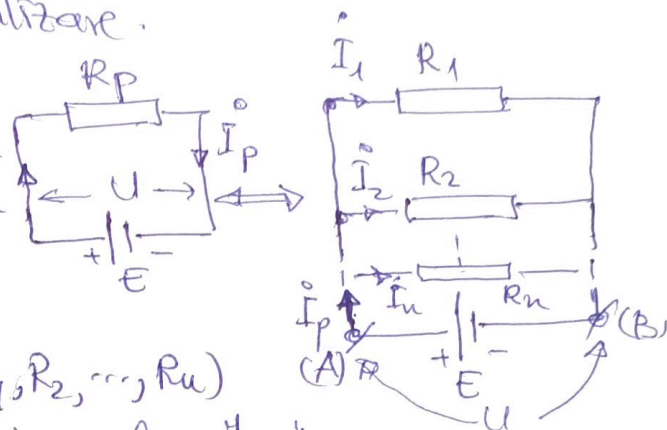 lizare.
Rp
İp
U
+ −
E
İ1 R1
İ2 R2
İn Rn
İp
(A) + − (B)
E
U
,R2, ..., Rn)